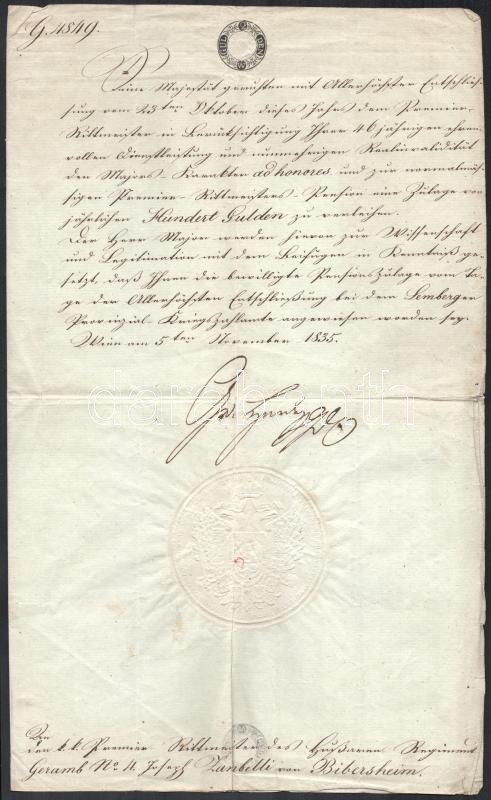 G. 4849.
GULDEN
Seine Majestät geruhten mit Allerhöchster Entschlie-
ßung vom 23ten Oktober dieses Jahrs dem Premier-
Rittmeister in Berücksichtigung Ihrer 46 jährigen ehren-
vollen Dienstleistung und nunmehrigen Realinvalidität
den Majors-Karakter ad honores, und zur normalmä-
ßigen Premier-Rittmeisters-Pension eine Zulage von
jährlichen Hundert Gulden zu verleihen.
Der Herr Major werden hievon zur Wissenschaft
und Legitimation mit dem Beifügen in Kenntniß ge-
setzt, daß Ihnen die bewilligte Pensionszulage vom Ta-
ge der Allerhöchsten Entschließung bei dem Lemberger
Provinzial-Kriegszahlamte angewiesen worden sey.
Wien am 5ten November 1835.
darabanth
Den k. k. Premier-Rittmeister des Hußaren Regiment
Geramb No. 4. Joseph Zanbelli von Bibersheim.